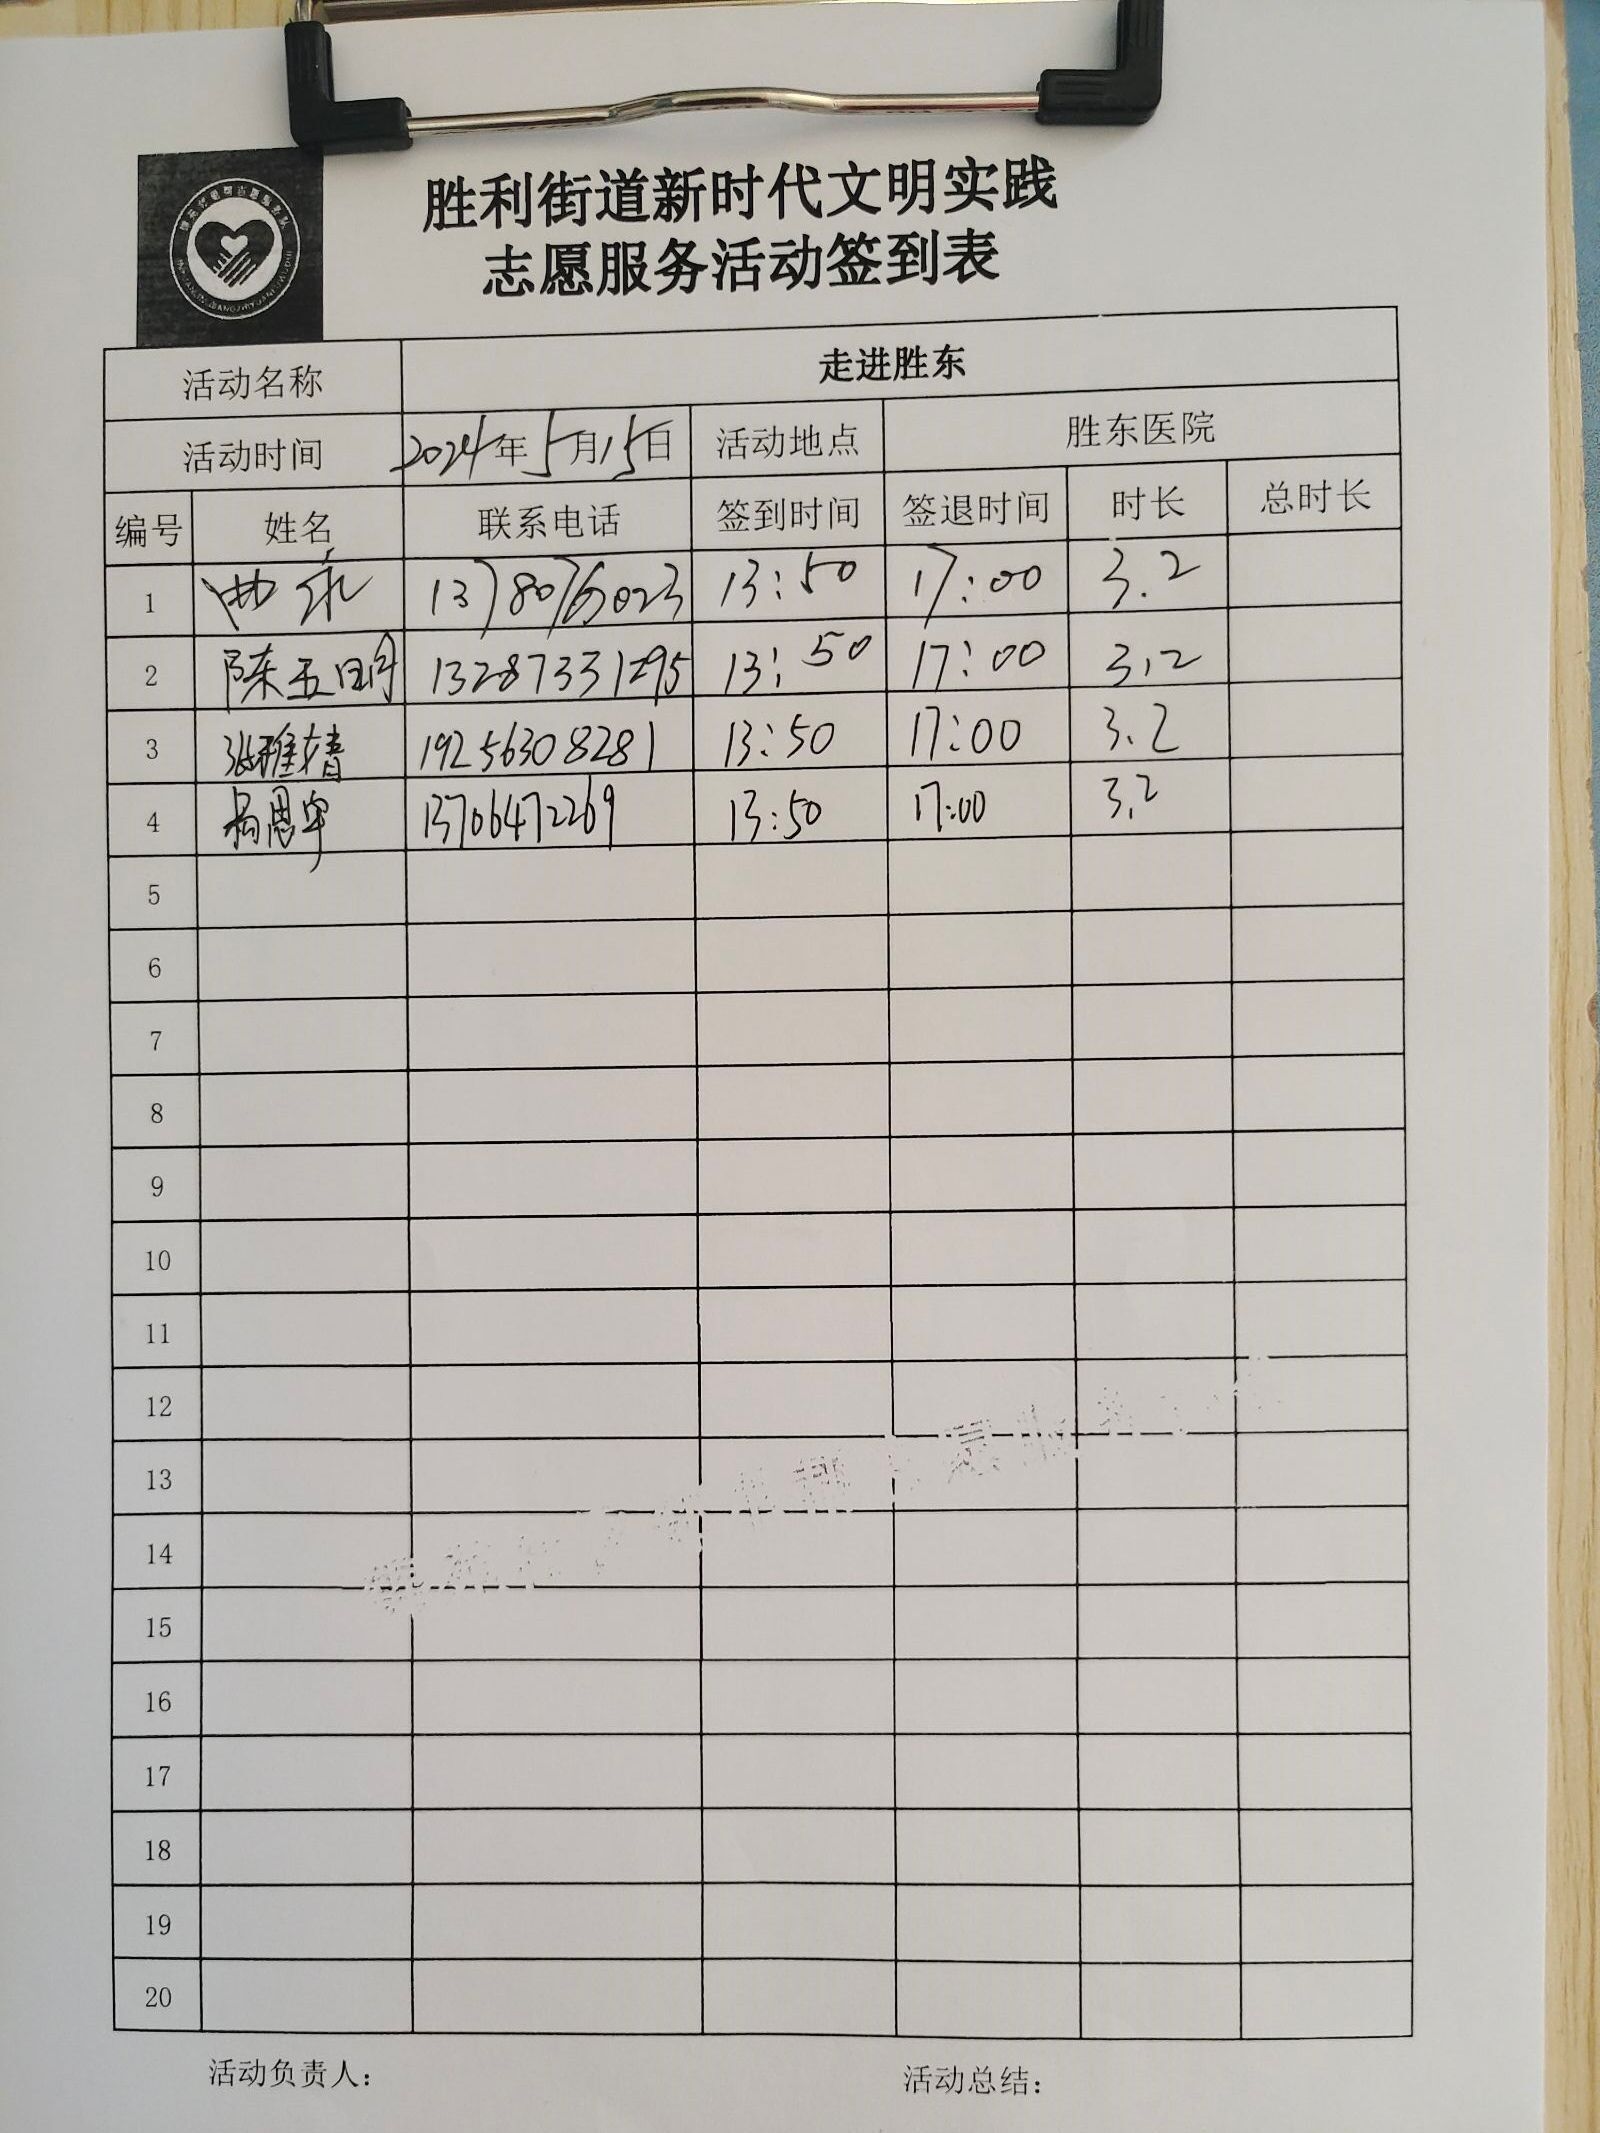 胜利街道新时代文明实践
志愿服务活动签到表
活动名称 走进胜东
活动时间 2024年5月15日 活动地点 胜东医院
编号 姓名 联系电话 签到时间 签退时间 时长 总时长
1 曲永 13780765023 13:50 17:00 3.2
2 陈玉明 13287331295 13:50 17:00 3.2
3 张雅婧 19256308281 13:50 17:00 3.2
4 杨恩宇 13706472269 13:50 17:00 3.2
5
6
7
8
9
10
11
12
13
14
15
16
17
18
19
20
活动负责人： 活动总结：